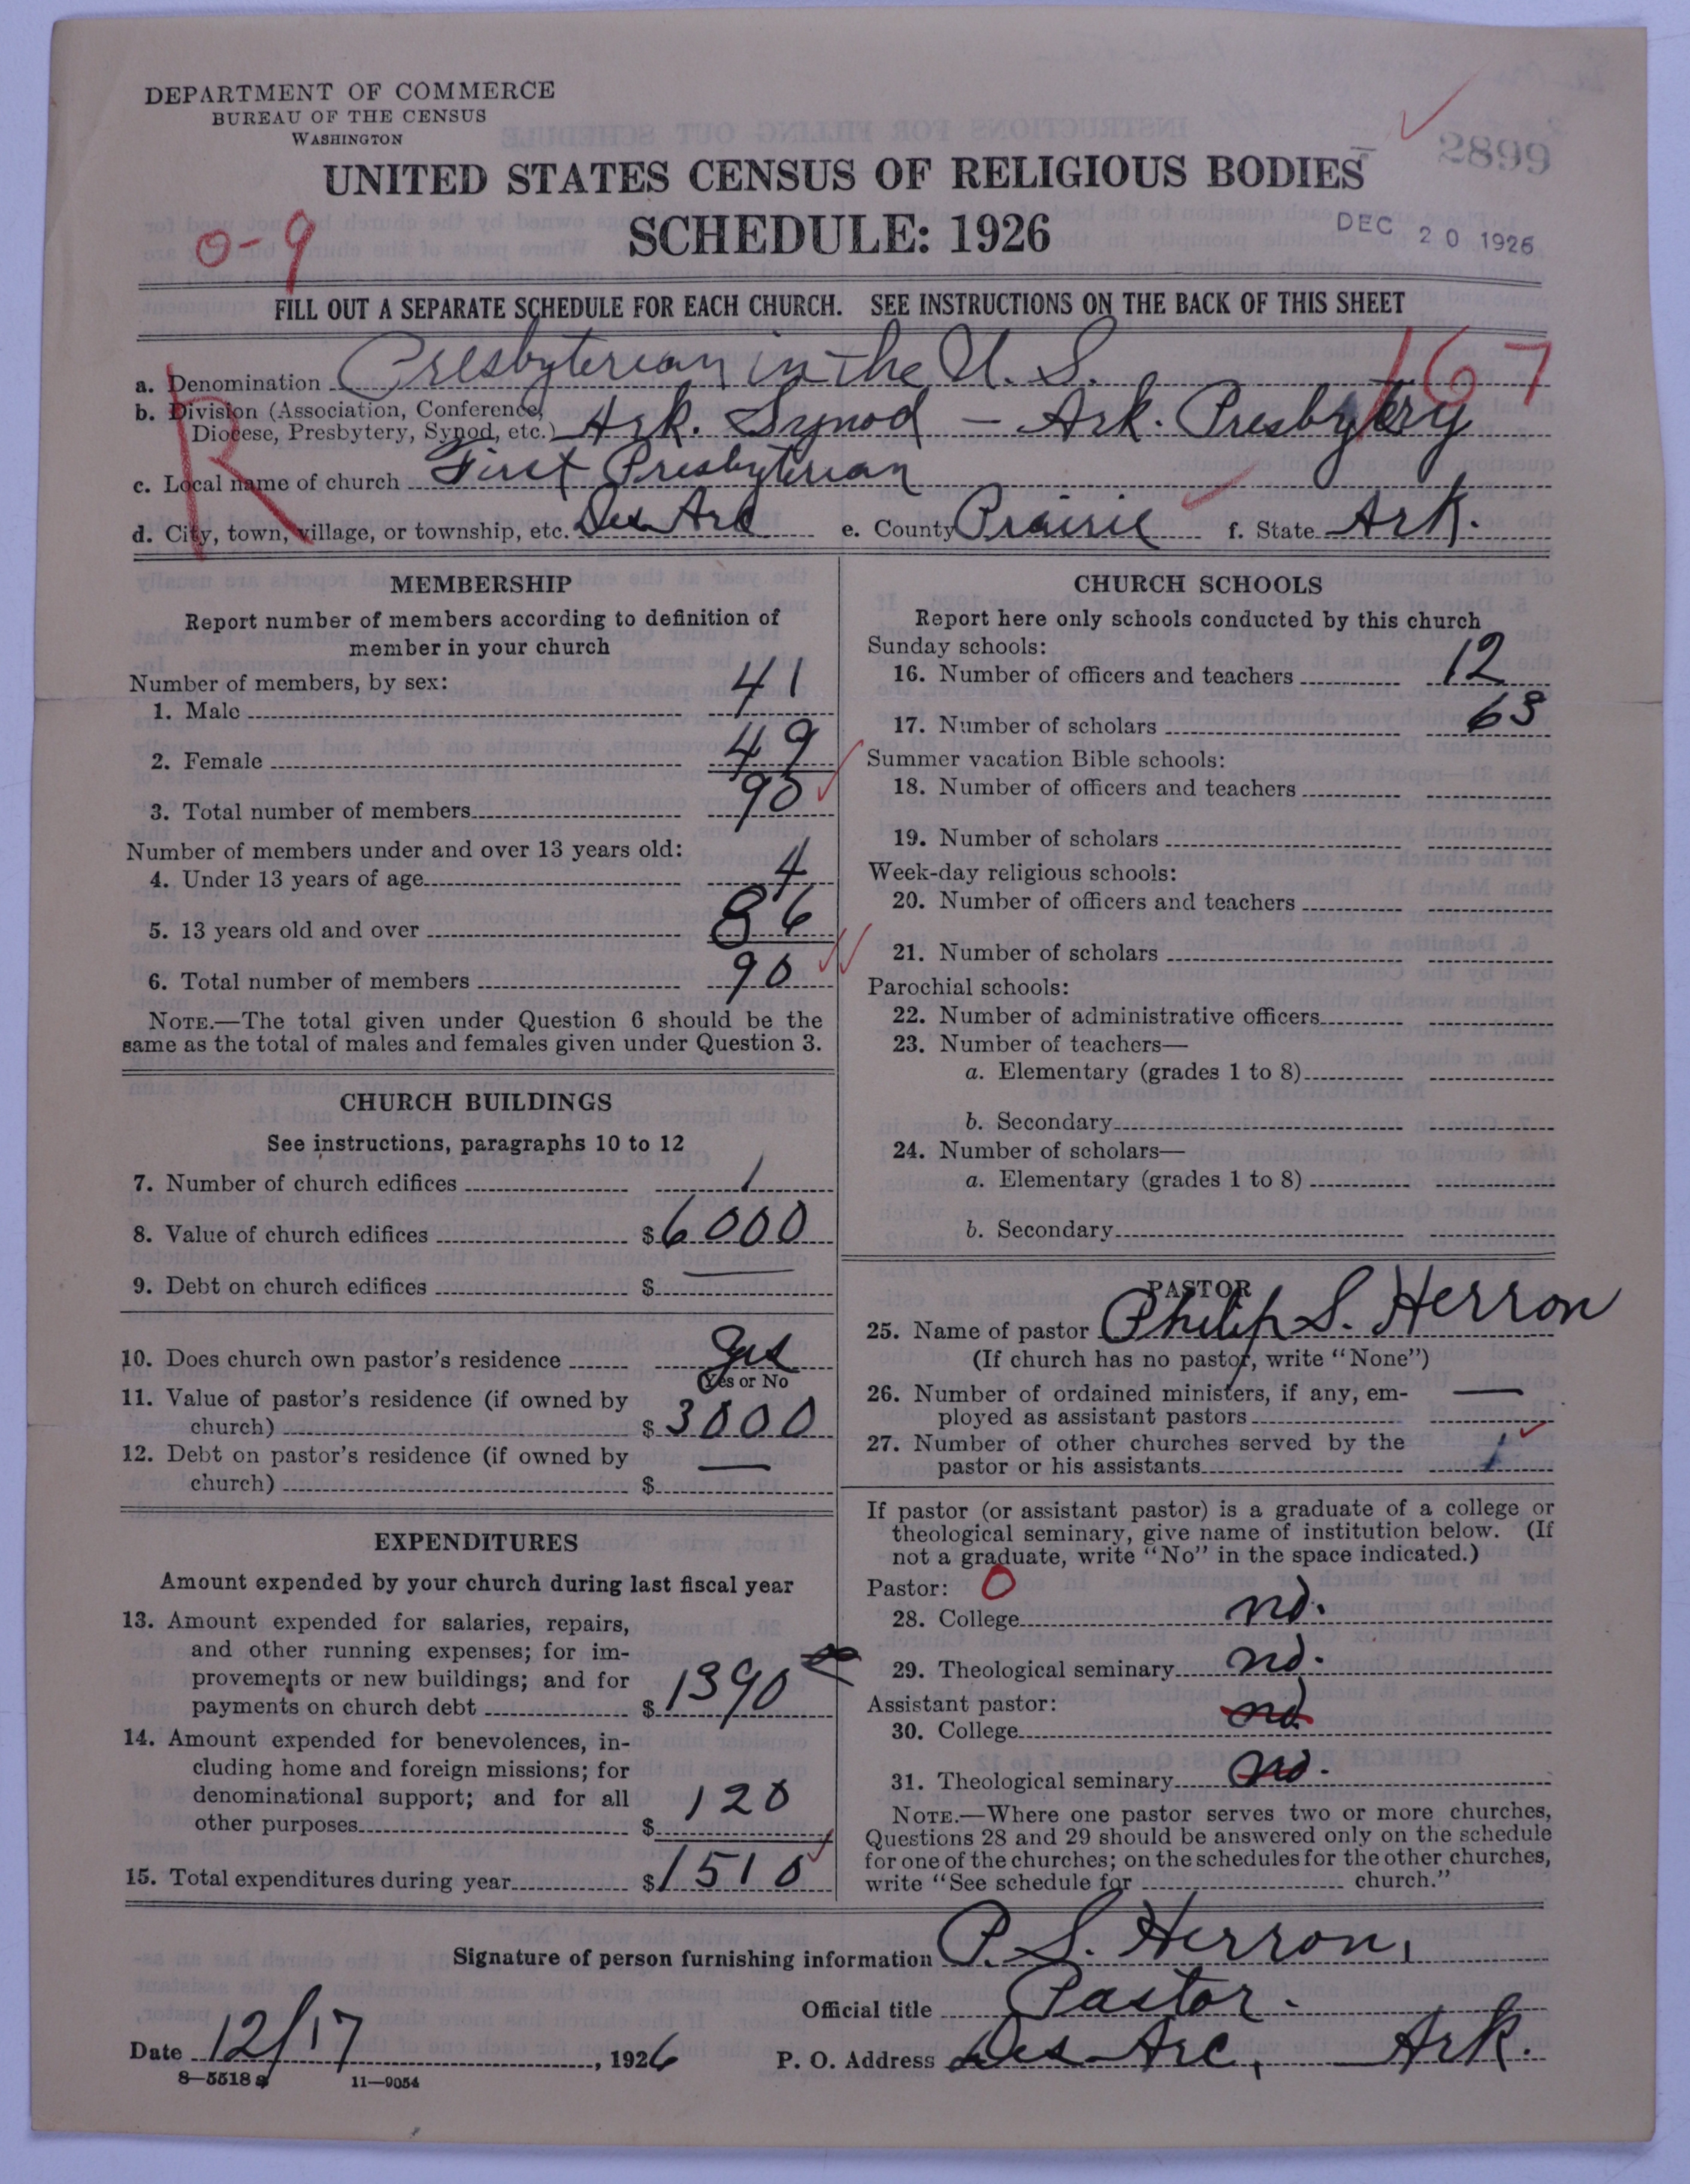 DEPARTMENT OF COMMERCE
BUREAU OF THE CENSUS
WASHINGTON
2899
UNITED STATES CENSUS OF RELIGIOUS BODIES
SCHEDULE: 1926
DEC 20 1926
0-9
FILL OUT A SEPARATE SCHEDULE FOR EACH CHURCH. SEE INSTRUCTIONS ON THE BACK OF THIS SHEET
167
R
a. Denomination Presbyterian in the U. S.
b. Division (Association, Conference,
Diocese, Presbytery, Synod, etc.) Ark. Synod - Ark. Presbytery
c. Local name of church First Presbyterian
d. City, town, village, or township, etc. Des Arc e. County Prairie f. State Ark.
MEMBERSHIP
Report number of members according to definition of
member in your church
Number of members, by sex:
1. Male 41
2. Female 49
3. Total number of members 90
Number of members under and over 13 years old:
4. Under 13 years of age 4
5. 13 years old and over 86
6. Total number of members 90
NOTE.—The total given under Question 6 should be the
same as the total of males and females given under Question 3.
CHURCH BUILDINGS
See instructions, paragraphs 10 to 12
7. Number of church edifices 1
8. Value of church edifices $6000
9. Debt on church edifices $ —
10. Does church own pastor's residence Yes
(Yes or No
11. Value of pastor's residence (if owned by
church) $3000
12. Debt on pastor's residence (if owned by
church) $ —
EXPENDITURES
Amount expended by your church during last fiscal year
13. Amount expended for salaries, repairs,
and other running expenses; for im-
provements or new buildings; and for
payments on church debt $1390
14. Amount expended for benevolences, in-
cluding home and foreign missions; for
denominational support; and for all
other purposes $120
15. Total expenditures during year $1510
CHURCH SCHOOLS
Report here only schools conducted by this church
Sunday schools:
16. Number of officers and teachers 12
17. Number of scholars 63
Summer vacation Bible schools:
18. Number of officers and teachers
19. Number of scholars
Week-day religious schools:
20. Number of officers and teachers
21. Number of scholars
Parochial schools:
22. Number of administrative officers
23. Number of teachers—
a. Elementary (grades 1 to 8)
b. Secondary
24. Number of scholars—
a. Elementary (grades 1 to 8)
b. Secondary
PASTOR
25. Name of pastor Philip S. Herron
(If church has no pastor, write "None")
26. Number of ordained ministers, if any, em-
ployed as assistant pastors —
27. Number of other churches served by the
pastor or his assistants 1
If pastor (or assistant pastor) is a graduate of a college or
theological seminary, give name of institution below. (If
not a graduate, write "No" in the space indicated.)
Pastor: 0
28. College no.
29. Theological seminary no.
Assistant pastor:
30. College no
31. Theological seminary no.
NOTE.—Where one pastor serves two or more churches,
Questions 28 and 29 should be answered only on the schedule
for one of the churches; on the schedules for the other churches,
write "See schedule for church."
Signature of person furnishing information P. S. Herron,
Official title Pastor.
Date 12/17, 1926 P. O. Address Des Arc, Ark.
8—5518 a 11—9054